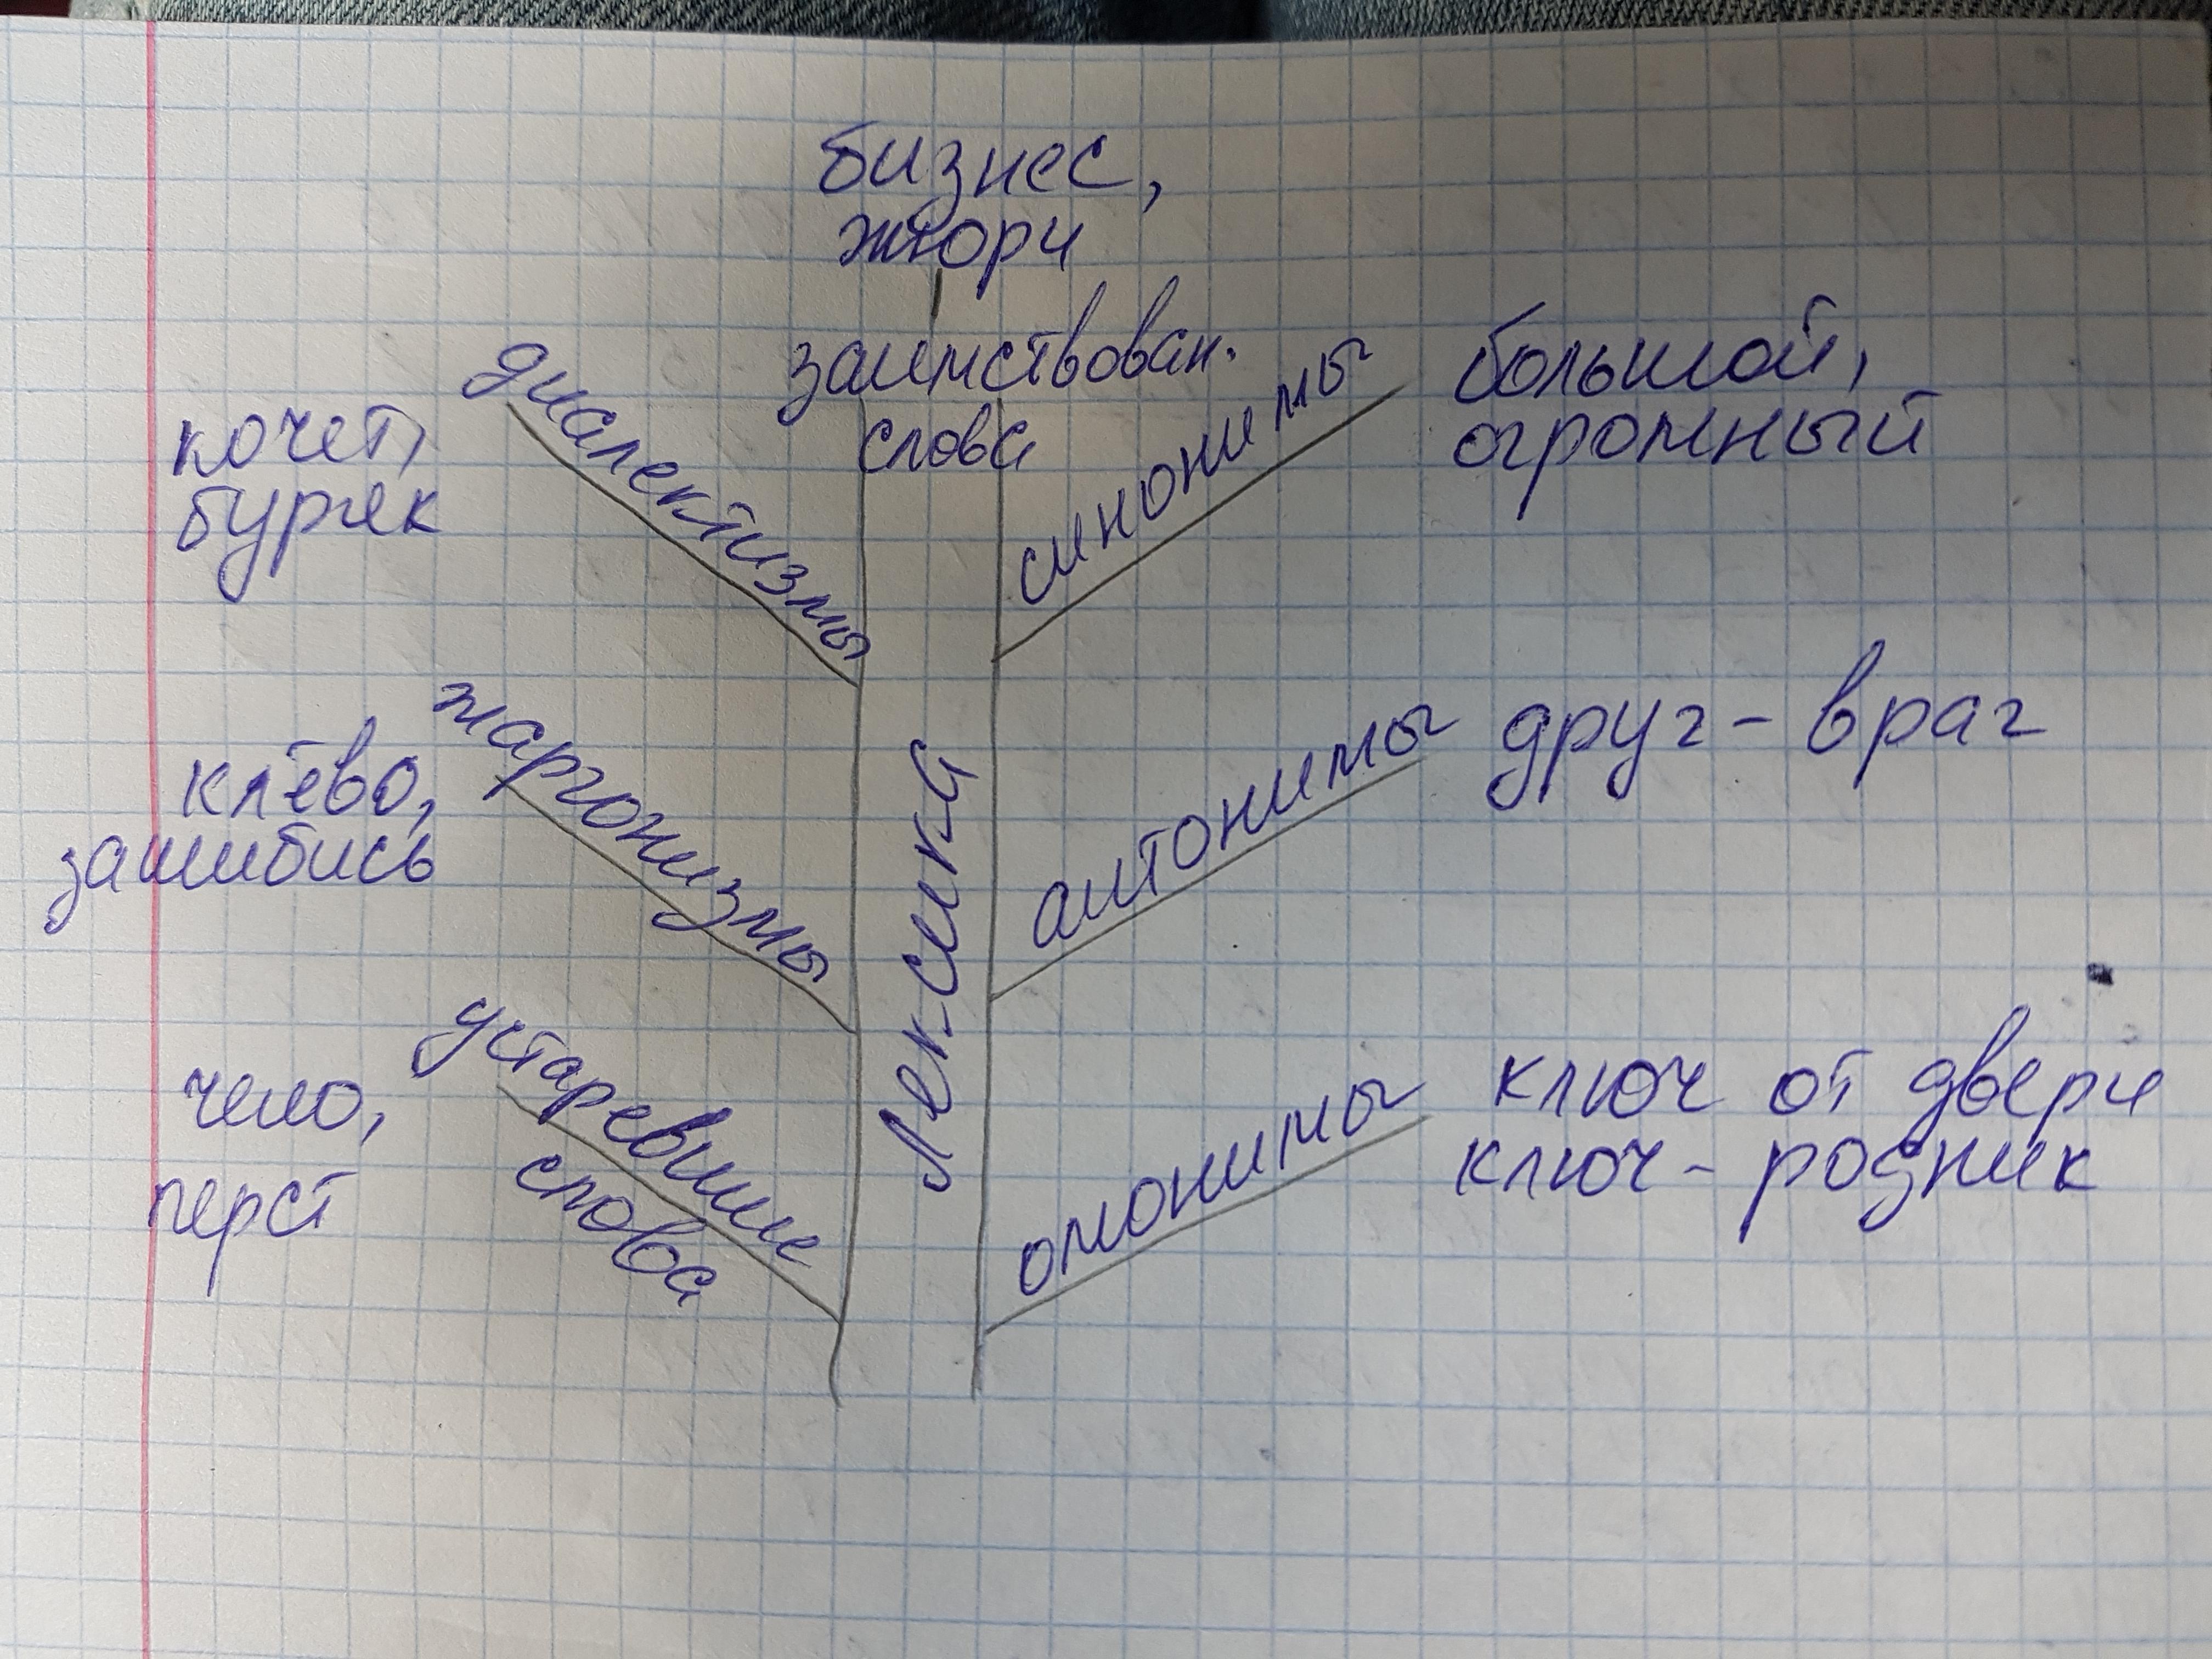 бизнес,
жюри
заимствован.
слова
диалектизмы
кочет,
буряк
синонимы
большой,
огромный
жаргонизмы
клёво,
зашибись
Лексика
антонимы
друг - враг
устаревшие
слова
чело,
перст
омонимы
ключ от двери
ключ - родник